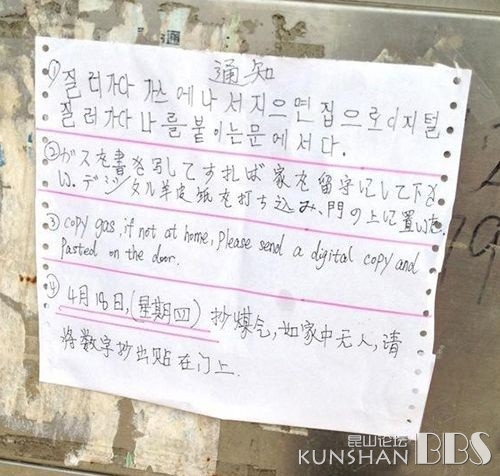 通知
① 질러가다 가스에나서지으면집으로디지털
질러가다나를붙이는문에서다.
② ガスを書き写してすれば家を留守にして下さ
い. デジタル羊皮紙を打ち込み、門の上に置いた.
③ copy gas, if not at home, Please send a digital copy and
Pasted on the door.
④ 4月18日,(星期四) 抄煤气,如家中无人,请
将数字抄出贴在门上.
昆山论坛
KUNSHAN BBS